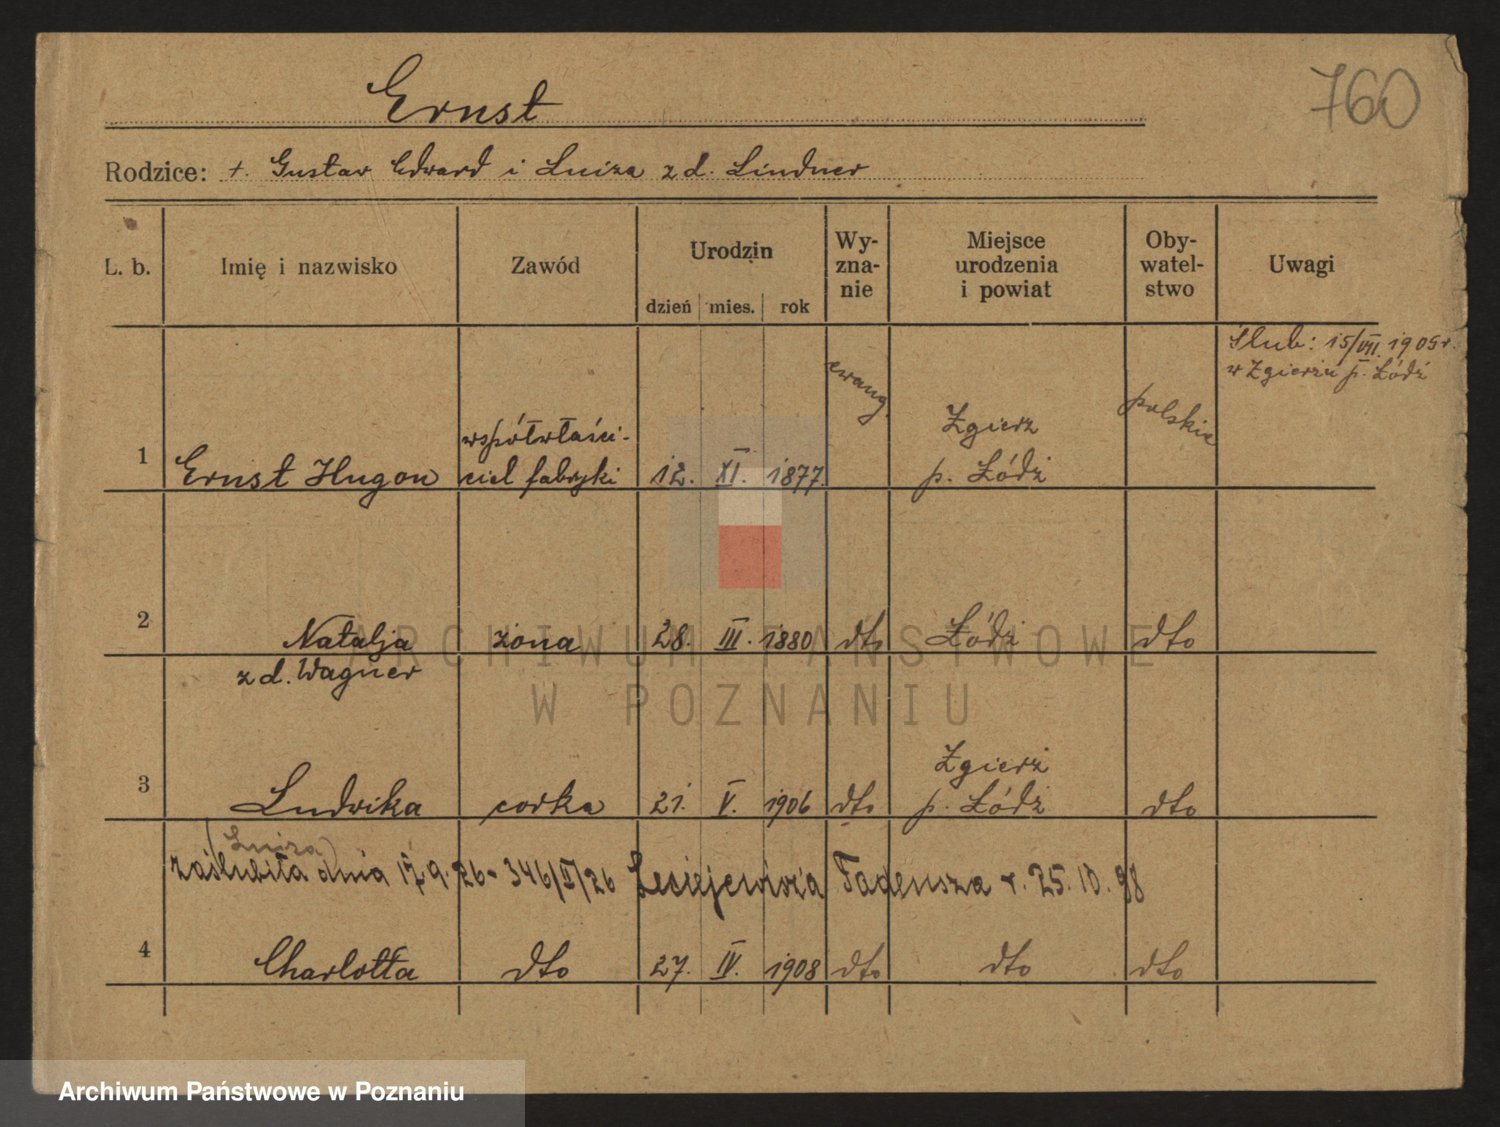 Ernst
760
Rodzice: +. Gustav Edward i Luiza z d. Lindner
L. b. Imię i nazwisko Zawód Urodzin Wy-zna-nie Miejsce urodzenia i powiat Oby-watel-stwo Uwagi
dzień mies. rok
Ślub: 15/VII. 1905 r.
w Zgierzu p. Łódź
1 Ernst Hugon współwłaści-ciel fabryki 12. XI. 1877. ewang. Zgierz p. Łódź polskie
2 Natalja żona 28. III. 1880 dto Łódź dto
z d. Wagner
3 Ludwika córka 21. V. 1906 dto Zgierz p. Łódź dto
(Luiza)
zaślubiła dnia 17.9.26 - 346/II/26 Leciejewicza Tadeusza r. 25.10.98
4 Charlotta dto 27. IV. 1908 dto dto dto
ARCHIWUM PAŃSTWOWE
W POZNANIU
Archiwum Państwowe w Poznaniu